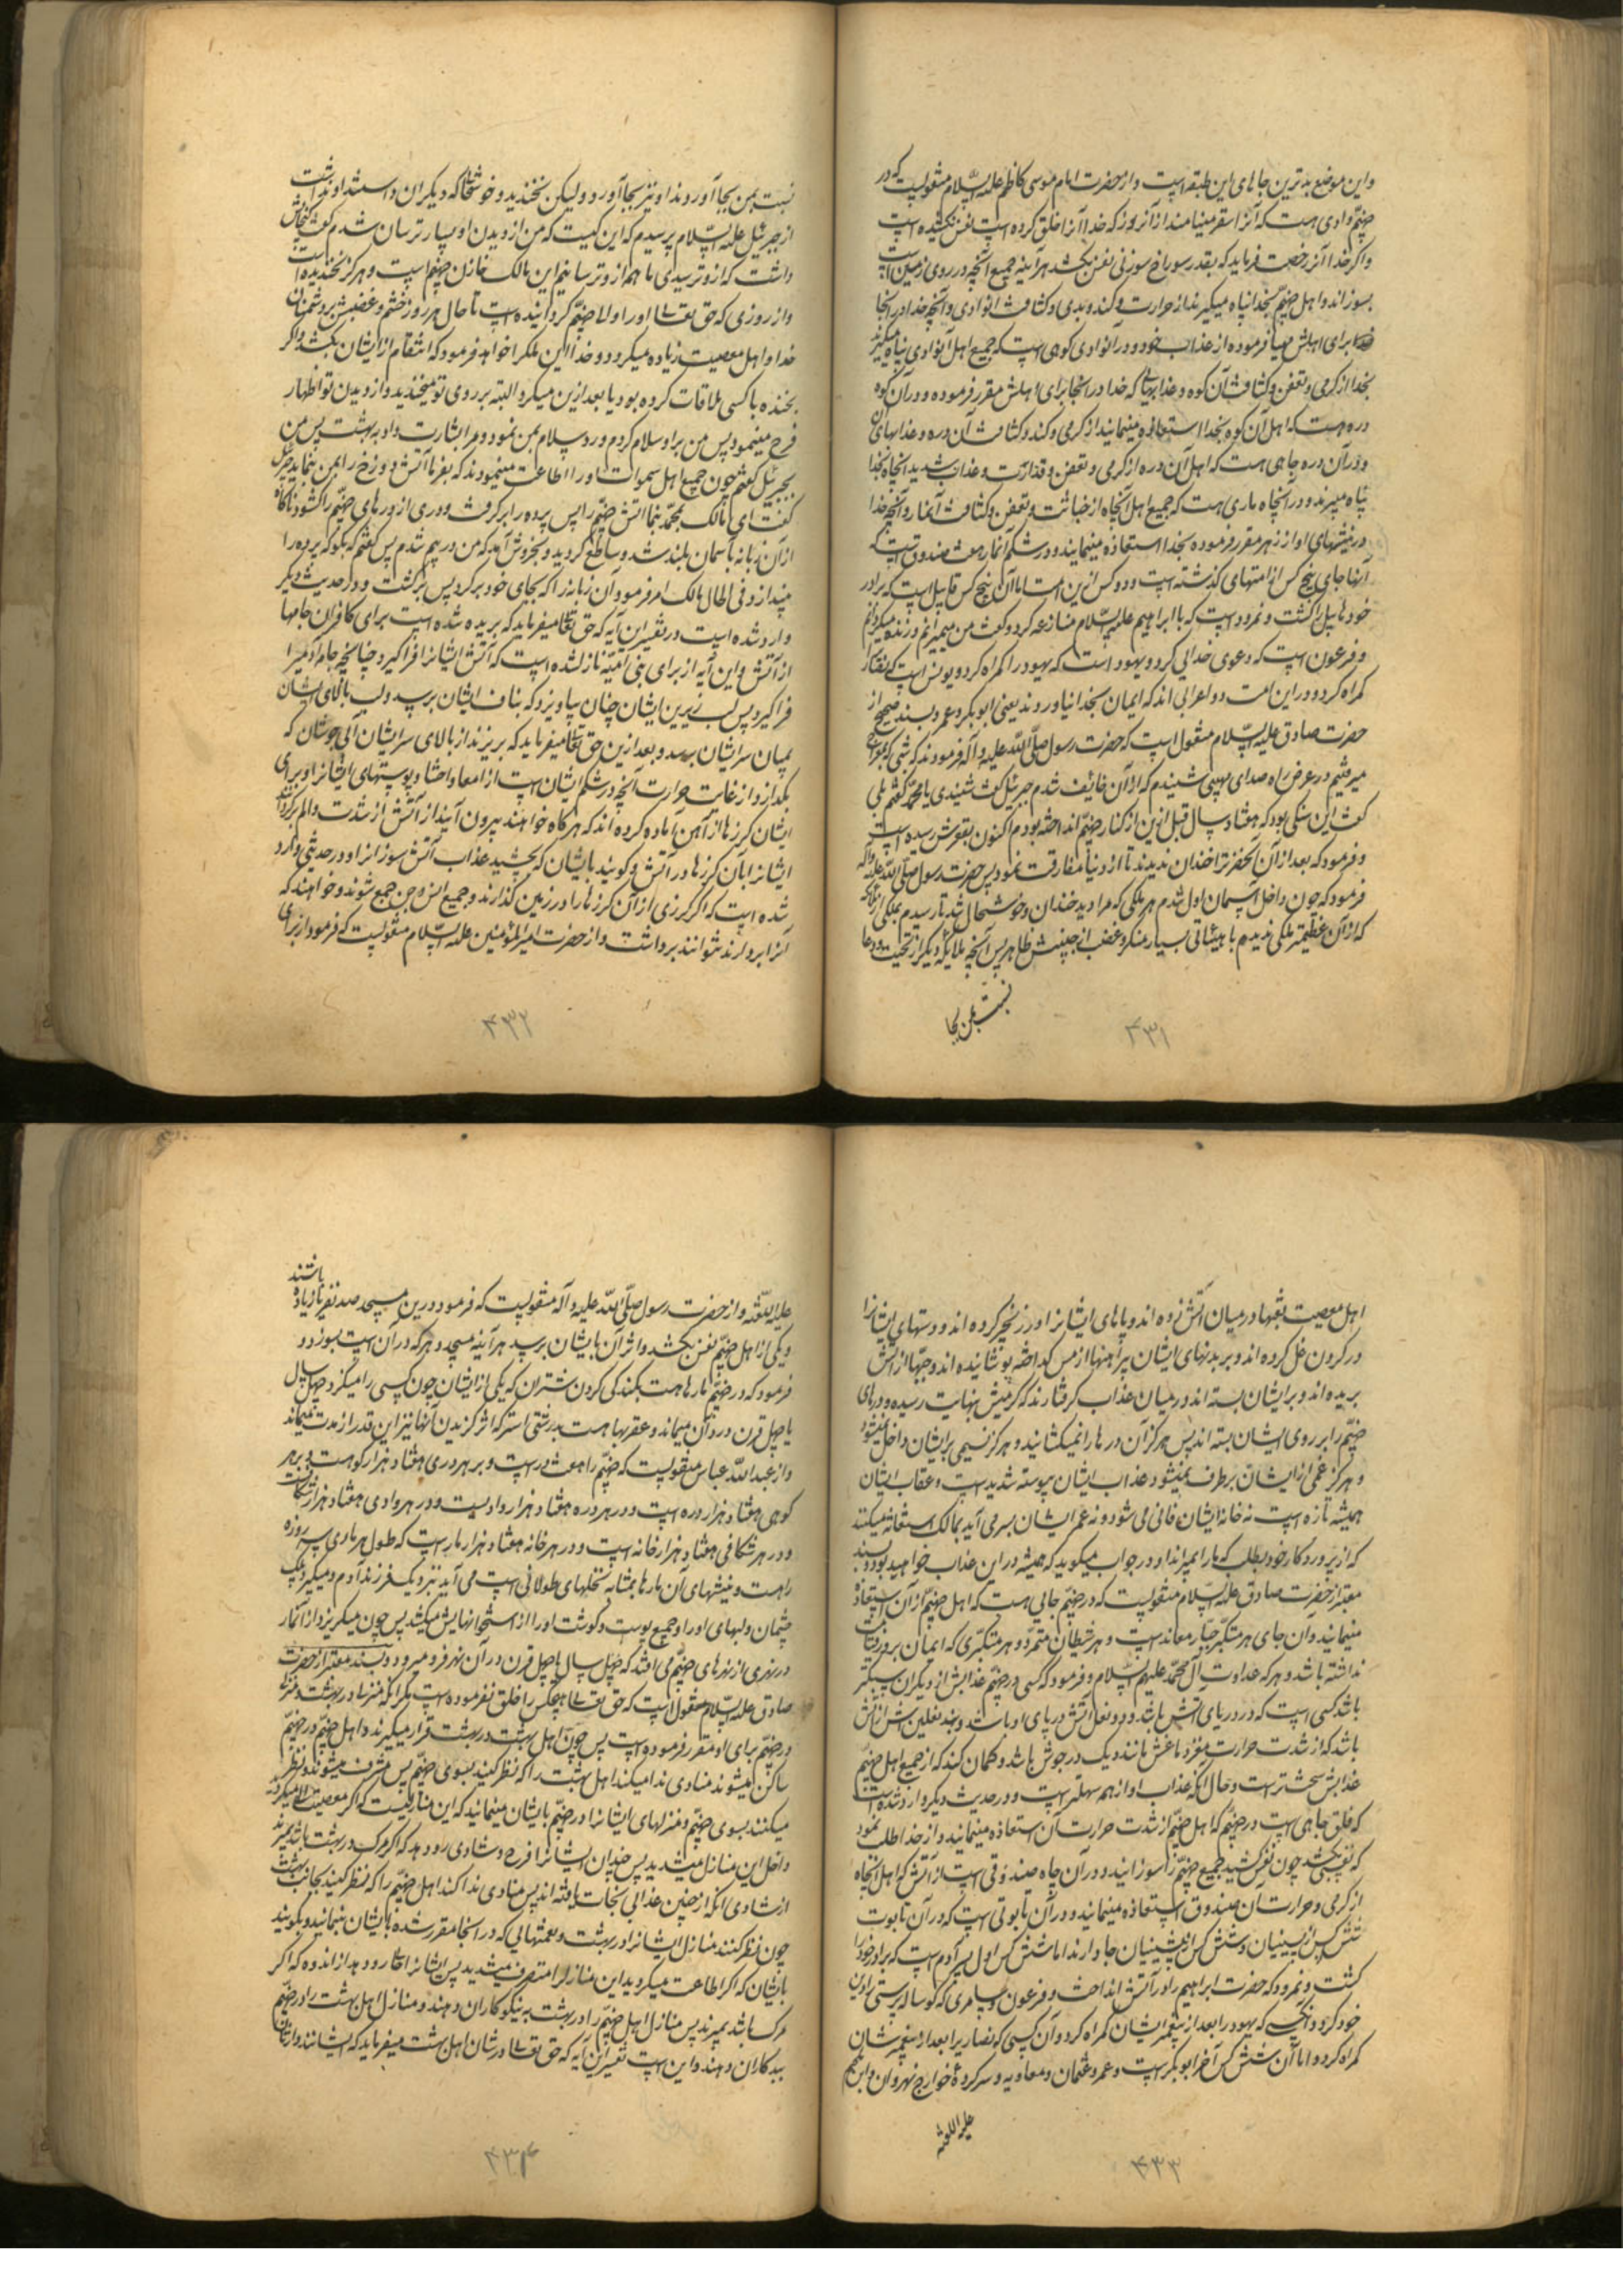 واین موضع بدترین جاهای این طبقه است و از حضرت امام موسی کاظم علیه السّلام منقولست که در
جهنّم وادی هست که آنرا سقر مینامند از آنروز که خدا آنرا خلق کرده است نفس نکشیده است
واگر خدا آنرا رخصت فرماید که بقدر سوراخ سوزنی نفس بکشد هرآینه جمیع آنچه در روی زمین است
بسوزاند و اهل جهنّم بخدا پناه میگیرند از حرارت و گند و بدی و کثافت آنوادی و آنچه خدا در آنجا
برای اهلش مهیّا فرموده از عذاب خود و در آنوادی کوهی است که جمیع اهل آنوادی پناه میگیرند
بخدا از گرمی و تعفن و کثافت آن کوه و عذابهائی که خدا در آنجا برای اهلش مقرر فرموده و در آن کوه
دره هست که اهل آن کوه بخدا استعاذه مینمایند از گرمی و گند و کثافت آن دره و عذابهای آن
و در آن دره چاهی هست که اهل آن دره از گرمی و تعفن و قذارت و عذاب شدید آنچاه بخدا
پناه میبرند و در آنچاه ماری هست که جمیع اهل آنچاه از خباثت و تعفن و کثافت آنمار و آنچه خدا
در نیشهای او از زهر مقرر فرموده بخدا استعاذه مینمایند و در شکم آنمار هفت صندوقست که
آنها جای پنج کس از امتهای گذشته است و دو کس از این امت اما آن پنج کس قابیل است که برادر
خود هابیل را کشت و نمرود است که با ابراهیم علیه السّلام منازعه کرد و گفت من میمیرانم و زنده میگردانم
و فرعون است که دعوی خدائی کرد و یهود است که یهود را گمراه کرد و یونس است که نصارا
گمراه کرد و در این امت دو اعرابی اند که ایمان بخدا نیاوردند یعنی ابوبکر و عمر و بسند صحیح از
حضرت صادق علیه السّلام منقول است که حضرت رسول صلّی اللّه علیه و آله فرمودند که شبی که بمعراج
میرفتم در عرض راه صدای مهیبی شنیدم که از آن خائف شدم جبرئیل گفت شنیدی یا محمّد گفتم بلی
گفت این سنگی بود که هفتاد سال قبل ازین از کنار جهنّم انداخته بودم اکنون بقعرش رسیده است
و فرمود که بعد از آن آنحضرت را خندان ندیدند تا از دنیا مفارقت نمود پس حضرت رسول صلّی اللّه علیه و آله
فرمود که چون داخل آسمان اول شدم هر ملکی که مرا دید خندان و خوشحال شد تا رسیدم بملکی از ملائکه
که از آن عظیمتر ملکی ندیدم با هیئاتی بسیار منکر و غضب از جبینش ظاهر پس آنچه ملائکه دیگر از تحیت و دعا
نسبت بمن بجا
۴۳۱
نسبت بمن بجا آوردند او نیز بجا آورد ولیکن نخندید و خوشحالی که دیگران داشتند او نداشت
از جبرئیل علیه السّلام پرسیدم که این کیست که من از دیدن او بسیار ترسان شدم گفت گنجایش
داشت که ازو ترسیدی ما هم ازو ترسانیم این مالک خازن جهنّم است و هرگز نخندیده است
و از روزی که حق تعالی او را والی جهنّم گردانیده است تا حال هر روز خشم و غضبش بر دشمنان
خدا و اهل معصیت زیاده میگردد و خدا این ملک را خواهد فرمود که انتقام از ایشان بکشد و اگر
بخنده با کسی ملاقات کرده بود یا بعد ازین میکرد البته بر روی تو میخندید و از دیدن تو اظهار
فرح مینمود پس من بر او سلام کردم و رد سلام بمن نمود و مرا بشارت داد به بهشت پس من
بجبرئیل گفتم چون جمیع اهل سموات او را اطاعت مینمودند که بفرما آتش دوزخ را بمن بنماید جبرئیل
گفت ای مالک بمحمّد بنما آتش جهنّم را پس پرده را برگرفت و دری از درهای جهنّم را گشود ناگاه
از آن زبانه بآسمان بلند شد و ساطع گردید و بخروش آمد که من در بیم شدم پس گفتم که بگو که پرده را
بیندازد فی الحال مالک امر فرمود آن زبانه را که بجای خود برگرد پس برگشت و در حدیث دیگر
وارد شده است در تفسیر این آیه که حق تعالی میفرماید که بریده شده است برای کافران جامها
از آتش و این آیه از برای بنی امیّه نازل شده است که آتش ایشانرا فرا گیرد چنانچه جامه آدمیرا
فرا گیرد پس لب زیرین ایشان چنان بیاویزد که بناف ایشان برسد و لب بالای ایشان
بمیان سر ایشان برسد و بعد ازین حق تعالی میفرماید که بریزند از بالای سر ایشان آبی جوشان که
بگدازد از غایت حرارت آنچه در شکم ایشان است از امعا و احشا و پوستهای ایشانرا و برای
ایشان گرزها از آهن آماده کرده اند که هرگاه خواهند بیرون آیند از آتش از شدت و الم برگردانند
ایشانرا بآن گرزها در آتش و گویند بایشان که بچشید عذاب آتش سوزانرا و در حدیثی وارد
شده است که اگر گرزی از آن گرزها را در زمین گذارند و جمیع انس و جن جمع شوند و خواهند که
آنرا بردارند نتوانند برداشت و از حضرت امیرالمؤمنین علیه السّلام منقولست که فرمود از برای
۴۳۲
اهل معصیت نقبها در میان آتش زده اند و پاهای ایشانرا در زنجیر کرده اند و دستهای ایشانرا
در گردن غل کرده اند و بر بدنهای ایشان پیراهنها از مس گداخته پوشانیده اند و جبّها از آتش
بریده اند و بر ایشان بسته اند در میان عذاب گرفتارند که گرمیش بنهایت رسیده و درهای
جهنّم را بر روی ایشان بسته اند پس هرگز آن درها را نمیگشانید و هرگز نسیمی بر ایشان داخل نمیشود
و هرگز غمی از ایشان برطرف نمیشود عذاب ایشان پیوسته شدید است و عقاب ایشان
همیشه تازه است نه خانه ایشان فانی می شود و نه عمر ایشان بسر می آید بمالک استغاثه میکنند
که از پروردگار خود بطلب که ما را بمیراند او در جواب میگوید که همیشه در این عذاب خواهید بود و بسند
معتبر از حضرت صادق علیه السّلام منقولست که در جهنّم جائی هست که اهل جهنّم از آن استعاذه
مینمایند و آن جای هر متکبّر جبّار معاند است و هر شیطان متمرّد و هر متکبّری که ایمان بروز قیامت
نداشته باشد و هر که عداوت آل محمّد علیهم السّلام و فرمود که کسی در جهنّم عذابش از دیگران سبکتر
باشد کسی است که در دریای آتش باشد و دو نعل آتش در پای او باشد و بند نعلین اش از آتش
باشد که از شدت حرارت مغز دماغش مانند دیک در جوش باشد و گمان کند که از جمیع اهل جهنّم
عذابش سخت تر است و حال آنکه عذاب او از همه سهلتر است و در حدیث دیگر وارد شده است
که فلق چاهی است در جهنّم که اهل جهنّم از شدت حرارت آن استعاذه مینمایند و از خدا طلب نمود
که نفسی بکشد چون نفس کشید جمیع جهنّم را سوزانید و در آن چاه صندوقی است از آتش که اهل آنچاه
از گرمی و حرارت آن صندوق استعاذه مینمایند و در آن تابوتی است که در آن تابوت
شش کس از پیشینیان و شش کس از پسینیان جا دارند اما شش کس اول پسر آدم است که برادر خود را
کشت و نمرود که حضرت ابراهیم را در آتش انداخت و فرعون و سامری که گوساله پرستی را دین
خود کرد و آنکسی که یهود را بعد از پیغمبر ایشان گمراه کرد و آن کسی که نصاریرا بعد از پیغمبرشان
گمراه کرد و اما آن شش کس آخر ابوبکر است و عمر و عثمان و معاویه و سرکرده خوارج نهروان و ابن ملجم
علیه اللعنه
۴۳۳
علیه اللّعنه و از حضرت رسول صلّی اللّه علیه و آله منقولست که فرمود درین مسجد صد نفر یا زیاده باشند
و یکی از اهل جهنّم نفس بکشد و اثر آن بایشان برسد هرآینه مسجد و هر که در آن است بسوزد و
فرمود که در جهنّم مارها هست بگندگی گردن شتران که یکی از ایشان چون کسی را میگزد چهل سال
یا چهل قرن در درد آن میماند و عقربها هست بدرشتی استر که اثر گزیدن آنها نیز این قدر از مدت میماند
و از عبداللّه عباس منقولست که جهنّم را هفت در است و بر هر دری هفتاد هزار کوهست و بر هر
کوهی هفتاد هزار دره است و در هر دره هفتاد هزار وادیست و در هر وادی هفتاد هزار شکافست
و در هر شکافی هفتاد هزار خانه است و در هر خانه هفتاد هزار مار است که طول هر ماری سه روزه
راهست و نیشهای آن مارها بمثابه نخلهای طولانی است می آید نزدیک فرزند آدم و میگیرد پلک
چشمان و لبهای او را و جمیع پوست و گوشت او را از استخوانهایش میکشد پس چون میگریزد از آنمار
در نهری از نهرهای جهنّم می افتد که چهل سال یا چهل قرن در آن نهر فرو میرود و بسند معتبر از حضرت
صادق علیه السّلام منقول است که حق تعالی هیچکس را خلق نفرموده است مگر آنکه منزلی در بهشت و منزلی
در جهنّم برای او مقرر فرموده است پس چون اهل بهشت در بهشت قرار میگیرند و اهل جهنّم در جهنّم
ساکن میشوند منادی ندا میکند اهل بهشت را که نظر کنید بسوی جهنّم پس مشرف میشوند و نظر
میکنند بسوی جهنّم و منزلهای ایشانرا در جهنّم بایشان مینمایند که این منازلیست که اگر معصیت الهی میکردید
داخل این منازل میشدید پس چندان ایشانرا فرح و شادی رو دهد که اگر مرگ در بهشت باشد بمیرند
از شادی آنکه از چنین عذابی نجات یافته اند پس منادی ندا کند اهل جهنّم را که نظر کنید بجانب بهشت
چون نظر کنند منازل ایشانرا در بهشت و نعمتهائی که در آنجا مقرر شده بایشان بنمایند و بگویند
بایشان که اگر اطاعت میکردید این منازل را متصرف میشدید پس ایشانرا حالی رو دهد از اندوه که اگر
مرگ باشد بمیرند پس منازل اهل جهنّم را در بهشت به نیکوکاران دهند و منازل اهل بهشت را در جهنّم
ببدکاران دهند و این است تفسیر این آیه که حق تعالی در شان اهل بهشت میفرماید که ایشانند وارثان
۴۳۴